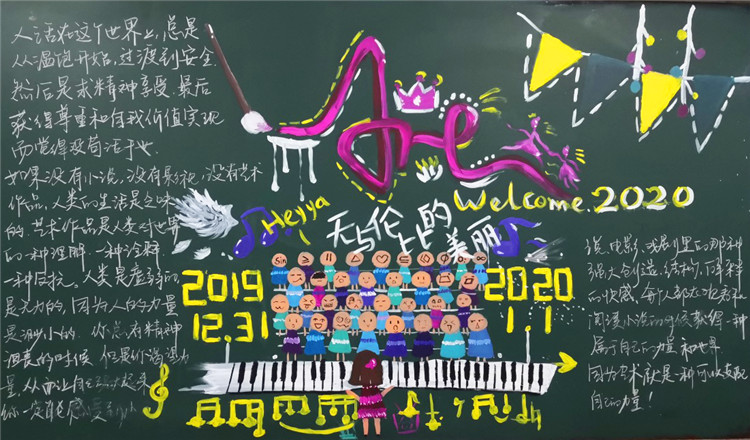 人活在这个世界上,总是
从温饱开始,过渡到安全
然后是求精神享受,最后
获得尊重和自我价值实现
而觉得没苟活于世.
如果没有小说,没有影视,没有艺术
作品,人类的生活是乏味
的.艺术作品是人类对世界
的一种理解 一种诠释
一种自抗,人类是虚弱的
是无力的,因为人的力量
是渺小的 你总有精神
的时候
量,从而让自己
你一定
Are
Welcome.2020
Heyya
无与伦比的
美丽
2019
12.31
2020
1.1
说,电影,戏剧里的那种
强大创造,结构,解释
的快感,每个人都
阅读小说的时候获得一种
属于自己的力量 和世界
因为艺术就是一种可以支配
自己的力量!